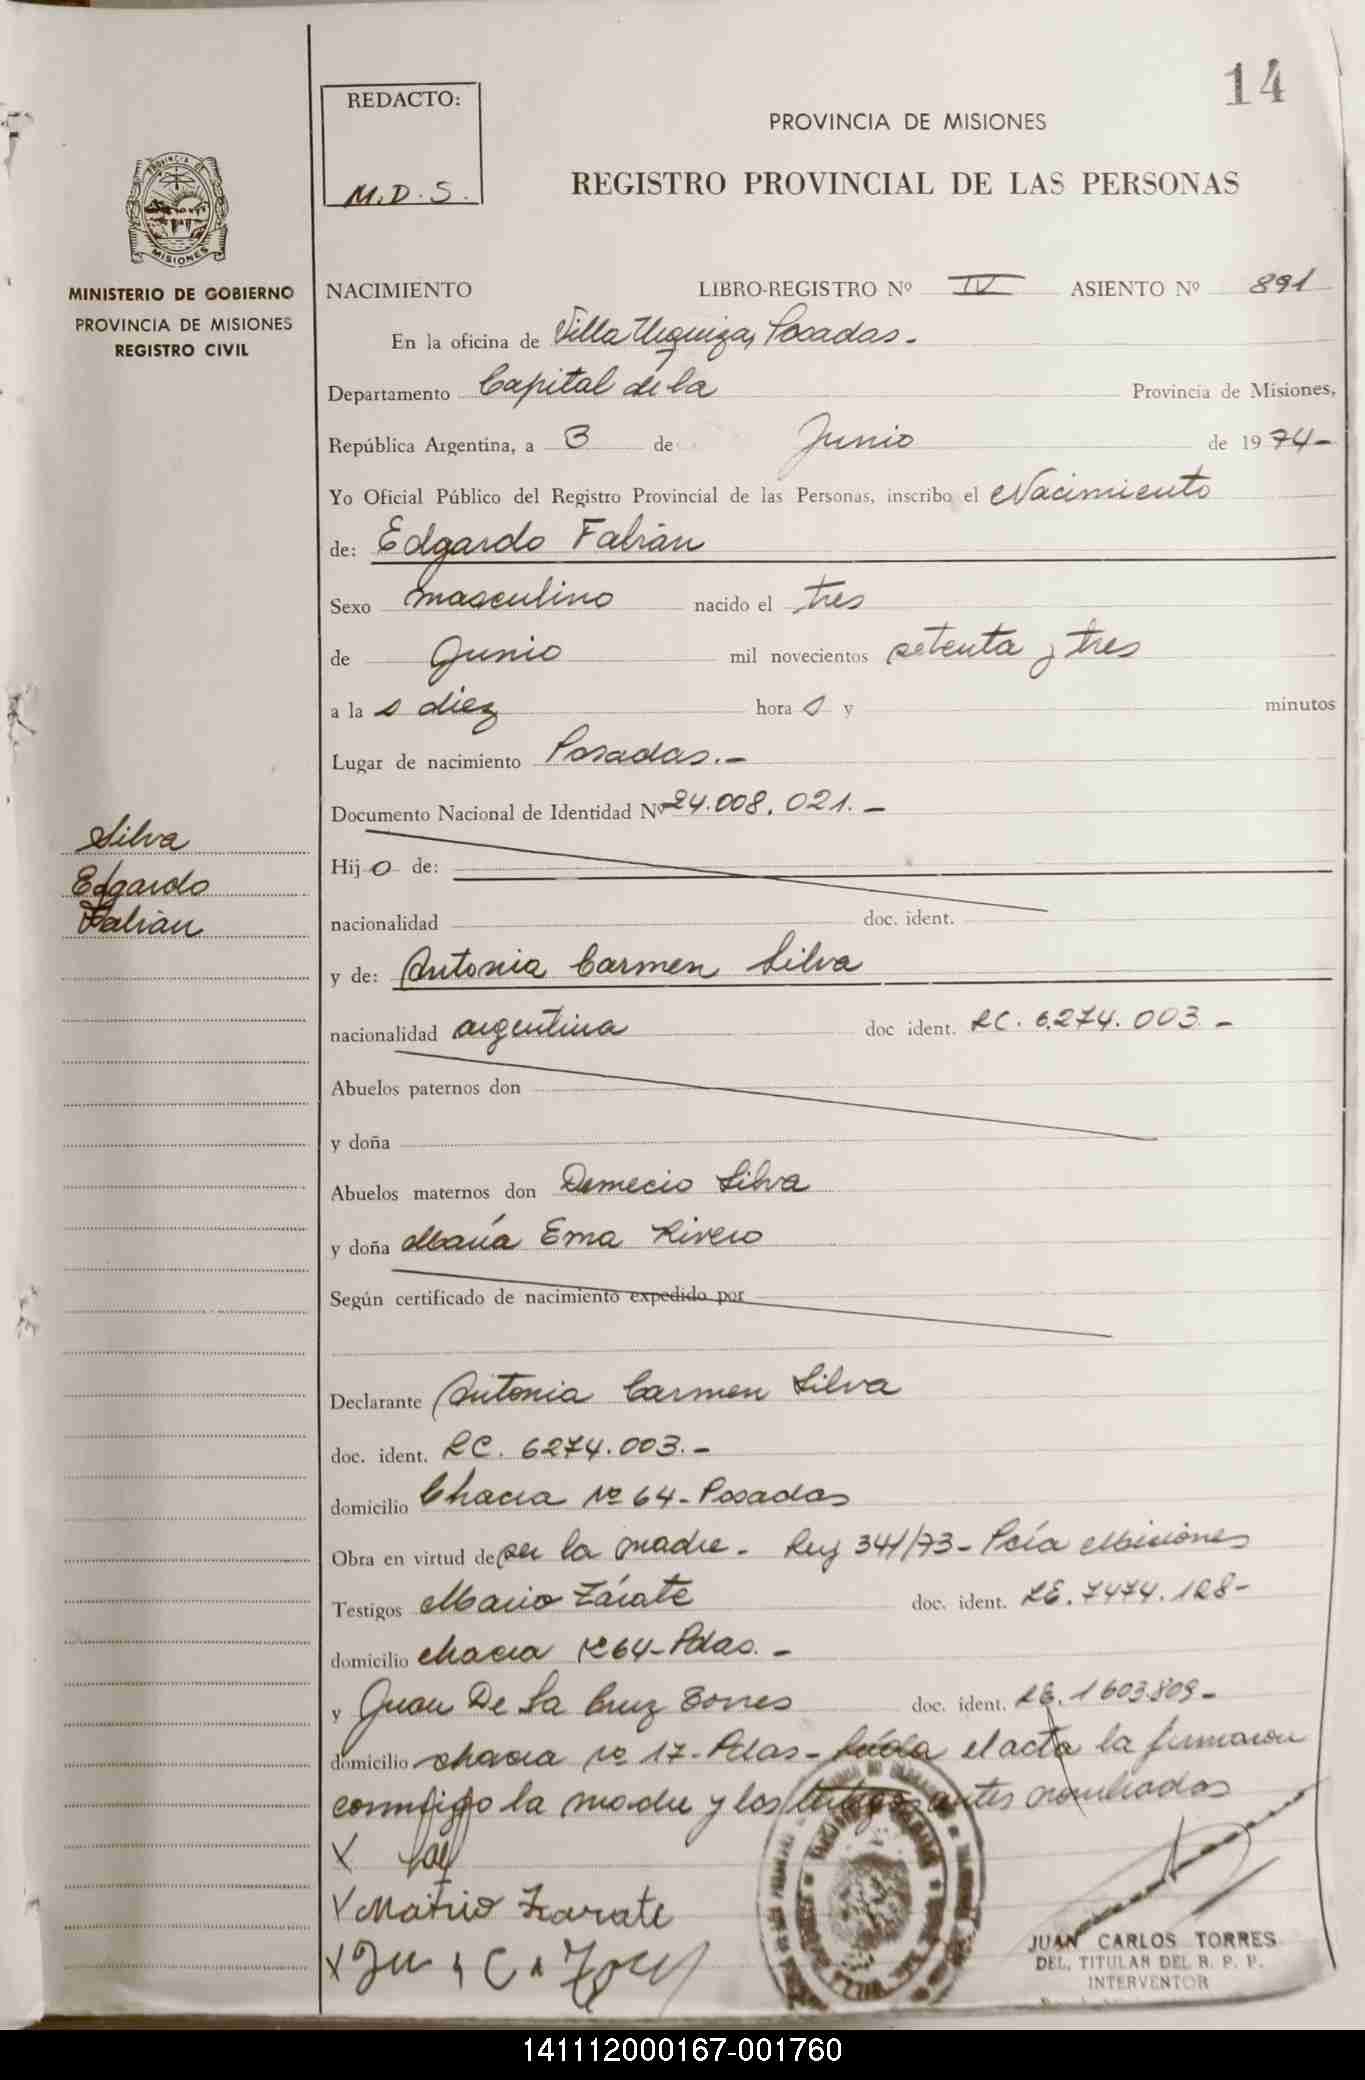 14
REDACTO:
M.D.S.
PROVINCIA DE MISIONES
REGISTRO PROVINCIAL DE LAS PERSONAS
MISIONES
MINISTERIO DE GOBIERNO
PROVINCIA DE MISIONES
REGISTRO CIVIL
NACIMIENTO LIBRO-REGISTRO Nº IV ASIENTO Nº 891
En la oficina de Villa Urquiza, Posadas.-
Departamento Capital de la Provincia de Misiones,
República Argentina, a 3 de Junio de 1974-
Yo Oficial Público del Registro Provincial de las Personas, inscribo el Nacimiento
de: Edgardo Fabián
Sexo masculino nacido el tres
de Junio mil novecientos setenta y tres
a las diez horas y minutos
Lugar de nacimiento Posadas.-
Documento Nacional de Identidad Nº 24.008.021.-
Silva
Edgardo
Fabián
Hijo de:
nacionalidad doc. ident.
y de: Antonia Carmen Silva
nacionalidad argentina doc ident. LC. 6.274.003.-
Abuelos paternos don
y doña
Abuelos maternos don Demecio Silva
y doña María Ema Rivero
Según certificado de nacimiento expedido por
Declarante Antonia Carmen Silva
doc. ident. LC. 6274.003.-
domicilio Chacra Nº 64-Posadas
Obra en virtud de ser la madre. Ley 341/73- Pcía Misiones
Testigos Mario Zárate doc. ident. LE. 7474.128-
domicilio chacra Nº 64-Pdas.-
y Juan De La Cruz Torres doc. ident. LE. 1603.809-
domicilio chacra Nº 17-Pdas- Leída el acta la firmaron
conmigo la madre y los testigos antes nombrados
X
X Matrio Zarate
X
JUAN CARLOS TORRES
DEL. TITULAR DEL R. P. P.
INTERVENTOR
141112000167-001760